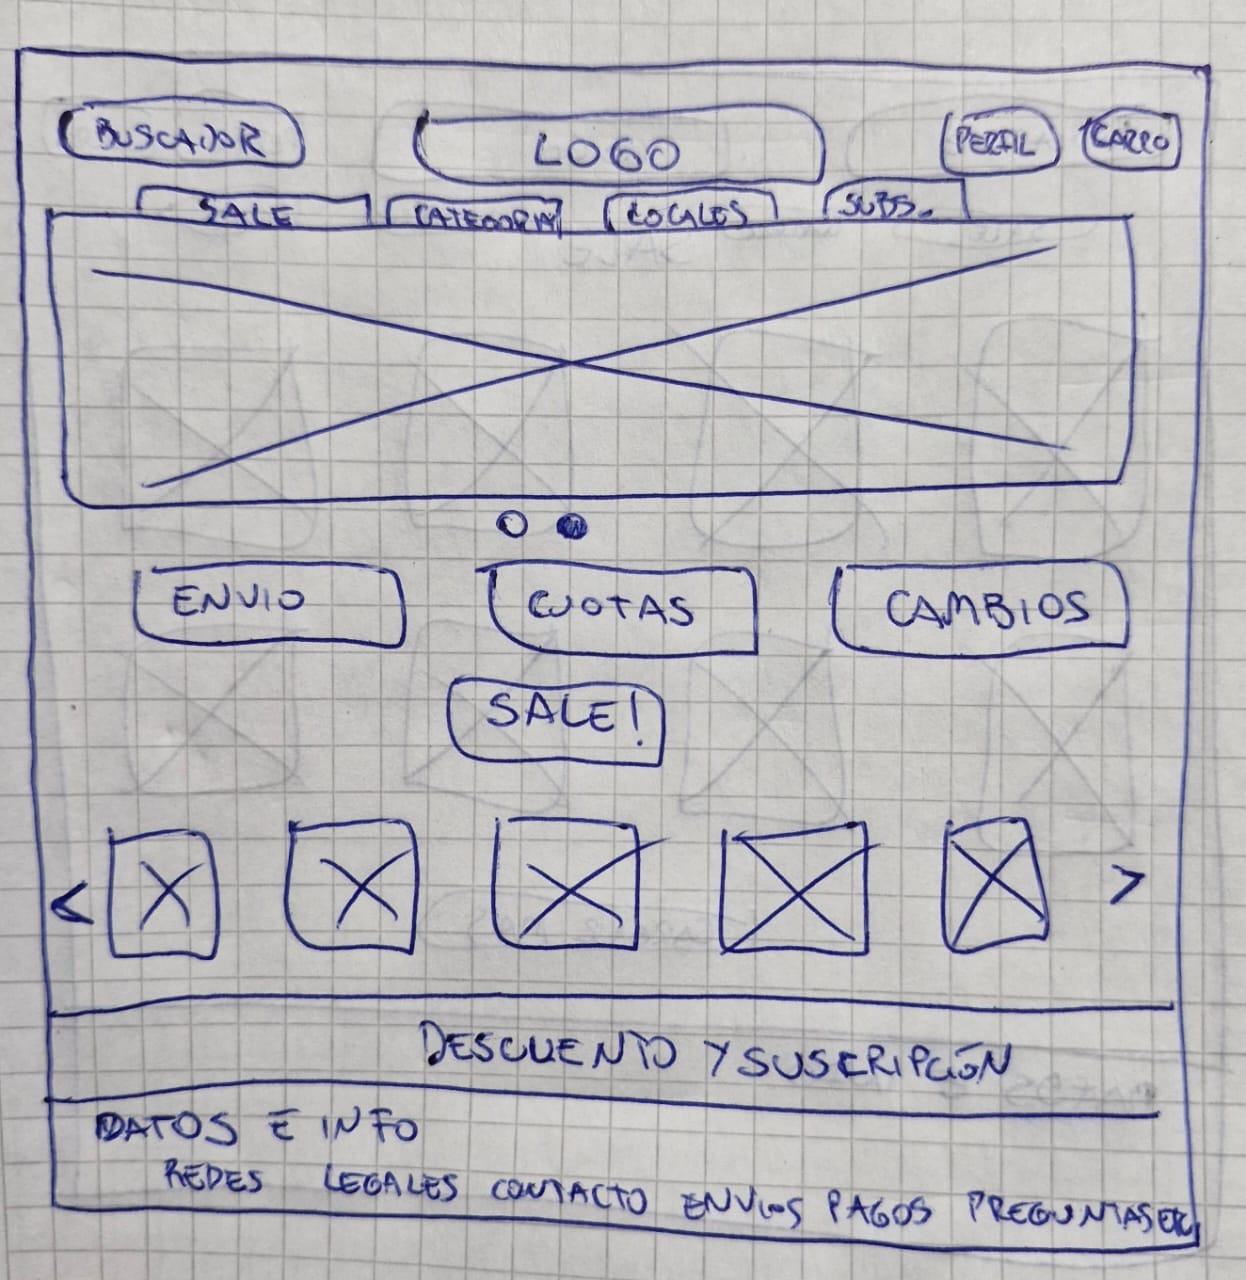 BUSCADOR LOGO PERFIL CARRO
SALE CATEGORIA LOCALES SUBS.
ENVIO CUOTAS CAMBIOS
SALE!
< >
DESCUENTO Y SUSCRIPCIÓN
DATOS E INFO
REDES LEGALES CONTACTO ENVIOS PAGOS PREGUNTAS